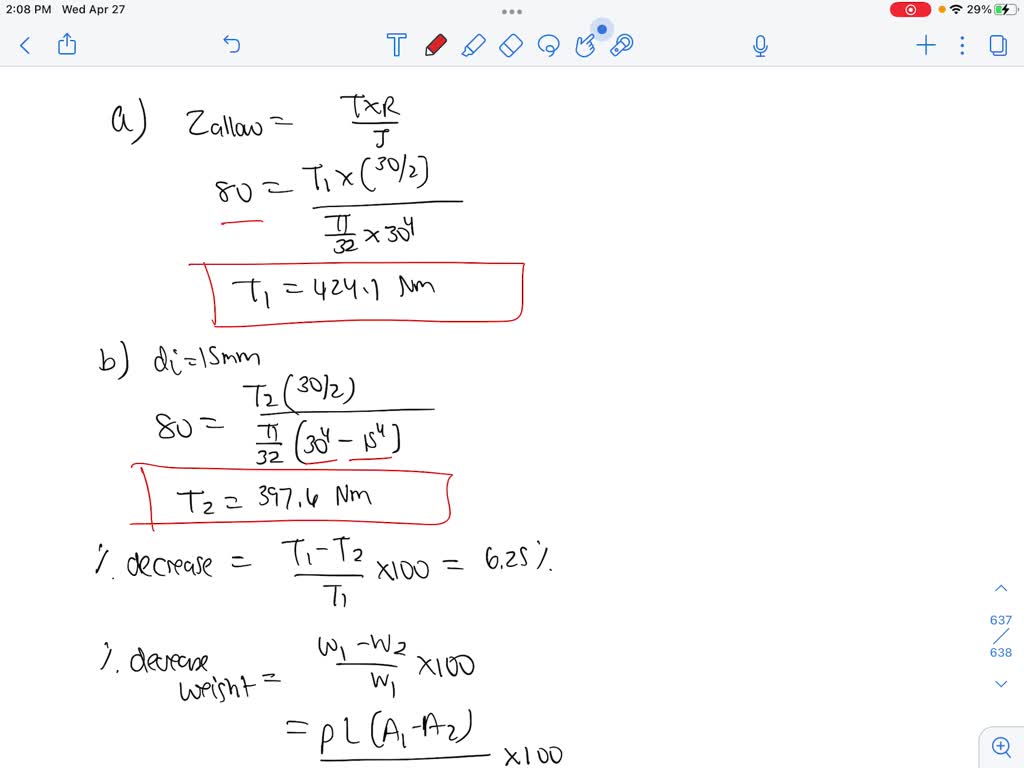 2:08 PM Wed Apr 27 29%
a) Zallow = TxR / J
80 = T1 x (30/2) / π/32 x 30^4
T1 = 424.1 Nm
b) di = 15mm
80 = T2 (30/2) / π/32 (30^4 - 15^4)
T2 = 397.6 Nm
% decrease = T1 - T2 / T1 x100 = 6.25%
% decrease weight = W1 - W2 / W1 x100
= ρL(A1 - A2) / x100
637 / 638